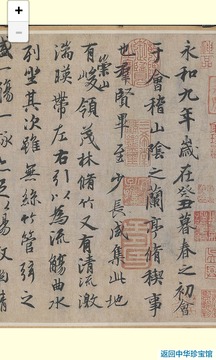 永和九年歲在癸丑暮春之初會
于會稽山陰之蘭亭脩稧事
也羣賢畢至少長咸集此地
有崇山峻領茂林脩竹又有清流激
湍暎帶左右引以為流觴曲水
列坐其次雖無絲竹管弦之
盛一
返回中华珍宝馆